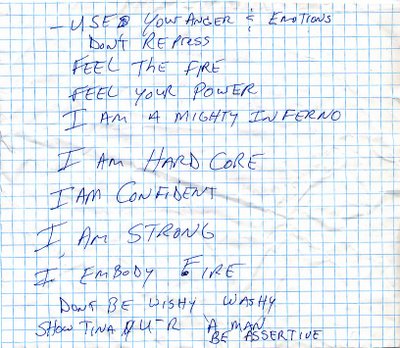 - USE YOUR ANGER & EMOTIONS
DON'T REPRESS
FEEL THE FIRE
FEEL YOUR POWER
I AM A MIGHTY INFERNO
I AM HARD CORE
I AM CONFIDENT
I AM STRONG
I EMBODY FIRE
DONT BE WISHY WASHY
SHOW TINA U R A MAN
BE ASSERTIVE